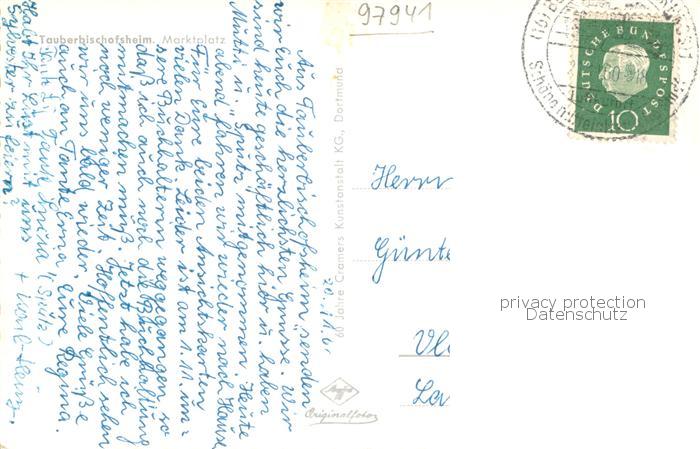 Tauberbischofsheim. Marktplatz
97941
20.
Aus Tauberbischofsheim senden
wir Euch die herzlichsten Grüsse. Wir
sind heute geschäftlich hier u. haben
Mutti u. Sputz mitgenommen. Heute
abend fahren wir wieder nach Hause
Für Eure beiden Ansichtskarten
vielen Dank. Leider ist am 1.11. un-
sere Buchhalterin weggegangen so
daß ich auch noch die Buchhaltung
mitmachen muß. Jetzt habe ich
noch weniger Zeit. Hoffentlich sehen
wir uns bald wieder. Viele Grüße
auch an Tante Erna. Eure Regina.
Tante Luisa (Sputz) + Karl-Heinz.
Habt Ihr Lust mit uns
Sylvester zu feiern?
60 Jahre Cramers Kunstanstalt KG., Dortmund
Agfa
Originalfoto
DEUTSCHE BUNDESPOST
10
Herrn
Günte
Vl
La
privacy protection
Datenschutz